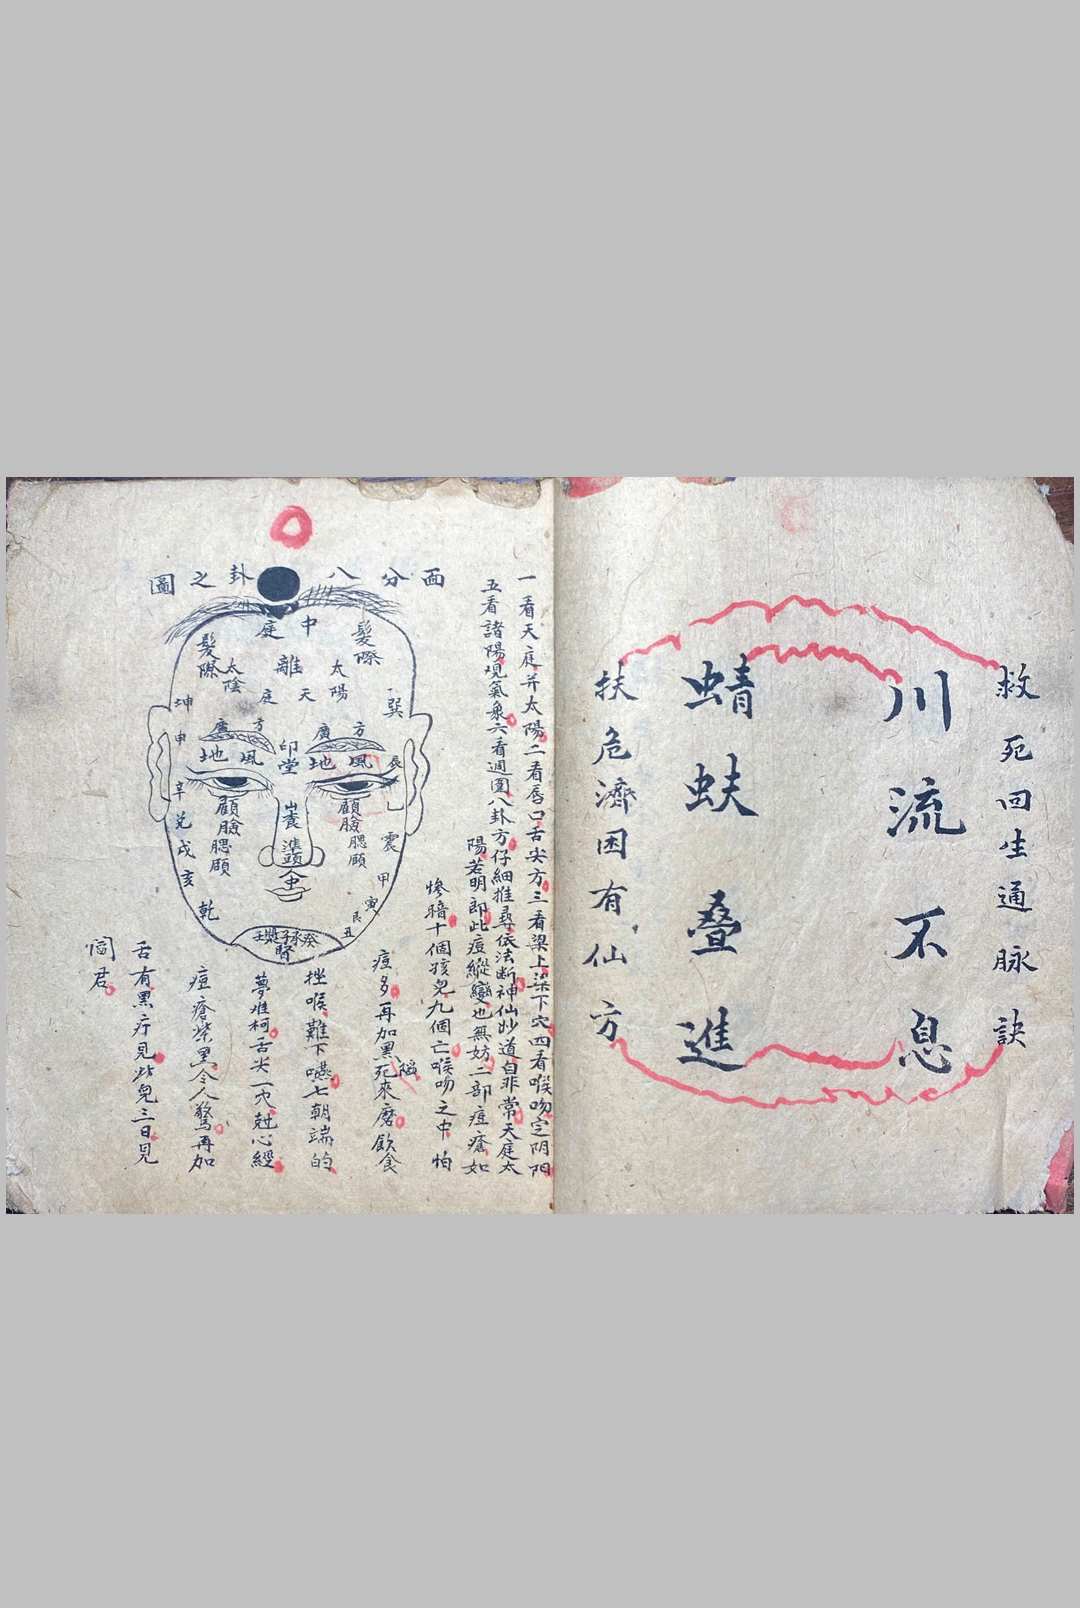 救死回生通脉訣
川流不息
蜻蚨叠進
扶危濟困有仙方
一看天庭并太陽二看唇口舌尖方三看梁上梁下穴四看喉吻定阴阳
五看諸陽覌氣象六看週圍八卦方仔細推尋依法断神仙妙道自非常天庭太
陽若明郎此痘縱變也無妨二部痘瘡如
惨暗十個孩兒九個亡喉吻之中怕
痘多再加黑死來磨飲食
挫喉難下嚥七朝端的
夢难柯舌尖一穴尅心經
痘瘡紫黑令人驚再加
舌有黑疔見此兒三日見
閻君
面分八卦之圖
中庭
髮際
髮際
離
太陽
太陰
天庭
巽
坤
申
方廣
方廣
印堂
風地
風地
辰
乙
辛
兌
戌
亥
乾
震
甲
寅
艮
丑
顴臉腮頤
顴臉腮頤
準頭
腎